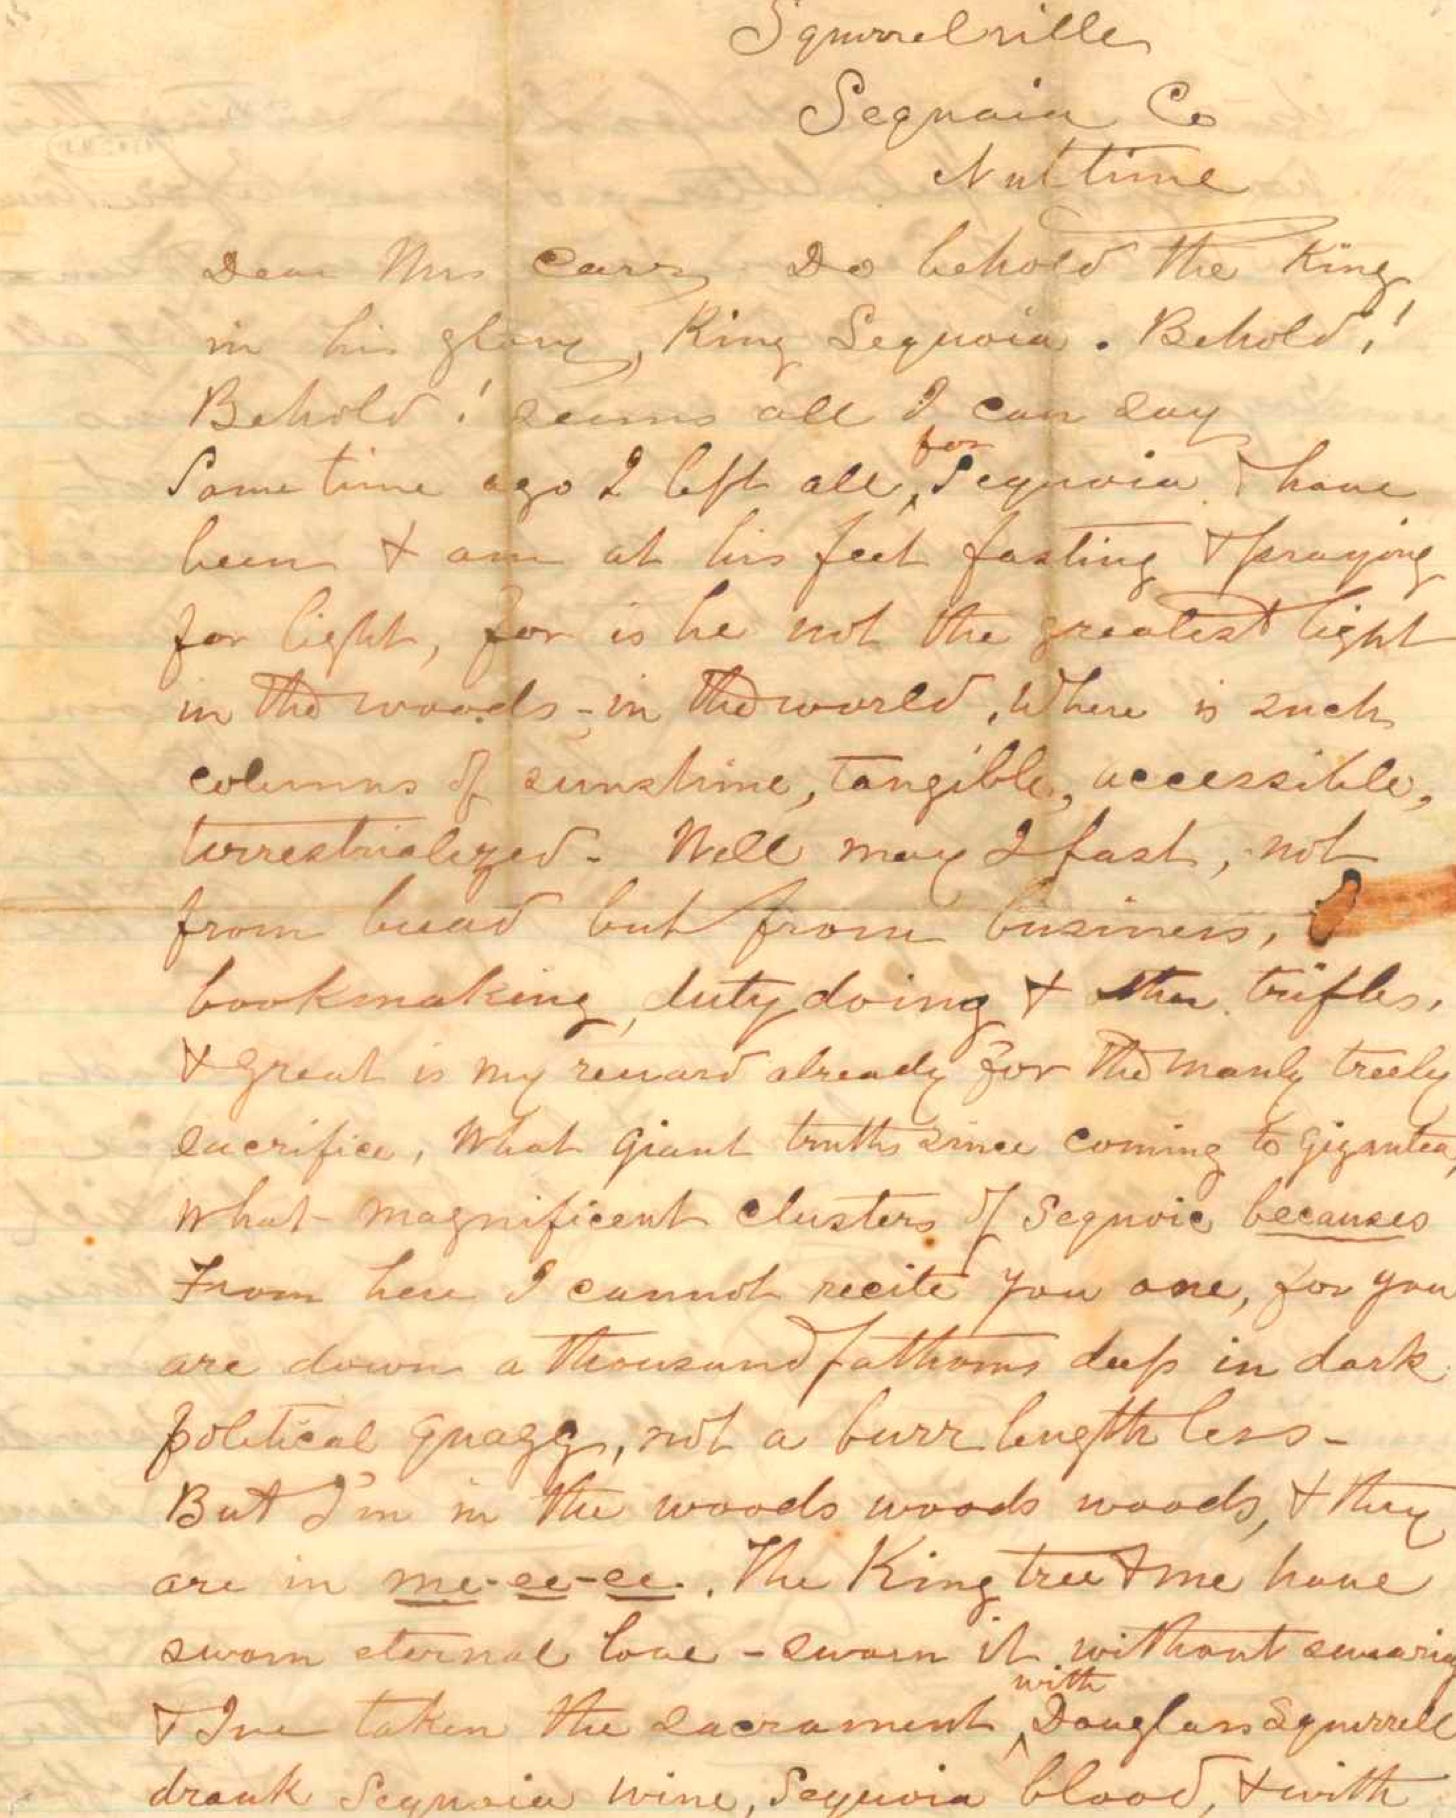 Squirrelville
Sequoia Co
Nut time
Dear Mrs Carr Do behold the King
in his glory, King Sequoia. Behold!
Behold! seems all I can say
Some time ago I left all for Sequoia & have
been & am at his feet fasting & praying
for light, for is he not the greatest light
in the woods - in the world. Where is such
columns of sunshine, tangible, accessible,
terrestrialized. Well may I fast, not
from bread but from business,
bookmaking, duty doing & other trifles,
& great is my reward already for the manly treely
sacrifice. What giant truths since coming to gigantea,
what magnificent clusters of Sequoic becauses
From here I cannot recite you one, for you
are down a thousand fathoms deep in dark
political quagg, not a burr length less -
But I'm in the woods woods woods, & they
are in me-ee-ee. The King tree & me have
sworn eternal love - sworn it without swearing
& Ive taken the sacrament with Douglass Squirrell
drank Sequoia wine, Sequoia blood, & with